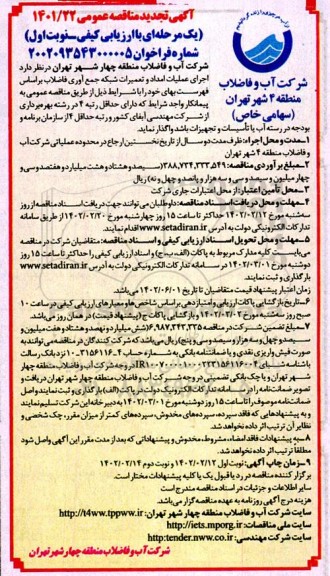 آگهی تجدید مناقصه عمومی ۱۴۰۱/۲۲
(یک مرحله‌ای با ارزیابی کیفی - نوبت اول)
شماره فراخوان ۲۰۰۲۰۹۳۵۴۳۰۰۰۰۰۵
شرکت آب و فاضلاب
منطقه ۴ شهر تهران
(سهامی خاص)
شرکت آب و فاضلاب منطقه چهار شهر تهران در نظر دارد
اجرای عملیات امداد و تعمیرات شبکه جمع آوری فاضلاب براساس
فهرست بهای خود را با شرایط ذیل از طریق مناقصه عمومی به
پیمانکار واجد شرایط که دارای حداقل رتبه ۴ در رشته بهره‌برداری
از شرکت مهندسی آبفای کشور و رتبه حداقل ۴ از سازمان برنامه و
بودجه در رسته آب یا تأسیسات و تجهیزات باشد واگذار نماید.
۱- مدت و محل اجرا: ظرف مدت دو سال از تاریخ نخستین ارجاع در محدوده عملیاتی شرکت آب
و فاضلاب منطقه ۴ شهر تهران
۲- مبلغ برآوردی مناقصه: ۳۸۸,۷۳۴,۳۳۳,۵۴۹ (سیصد و هشتاد و هشت میلیارد و هفتصد و سی و
چهار میلیون و سیصد و سی و سه هزار و پانصد و چهل و نه) ریال
۳- محل تأمین اعتبار: از محل اعتبارات جاری شرکت
۴- مهلت و محل دریافت اسناد مناقصه: داوطلبان می‌توانند جهت دریافت اسناد مناقصه از روز
سه‌شنبه مورخ ۱۴۰۲/۰۲/۱۲ حداکثر تا ساعت ۱۵ روز چهارشنبه مورخ ۱۴۰۲/۰۲/۲۰ از طریق سامانه
تدارکات الکترونیکی دولت به آدرس www.setadiran.ir اقدام نمایند.
۵- مهلت و محل تحویل اسناد ارزیابی کیفی و اسناد مناقصه: متقاضیان شرکت در مناقصه
می‌بایست کلیه مدارک مربوط به پاکات (الف، ب، ج) و اسناد ارزیابی کیفی را حداکثر تا ساعت ۱۵ روز
دوشنبه مورخ ۱۴۰۲/۰۳/۰۱ در سامانه تدارکات الکترونیکی دولت به آدرس www.setadiran.ir
بارگذاری و ثبت نمایند.
زمان اعتبار پیشنهاد قیمت متقاضیان تا تاریخ ۱۴۰۲/۰۶/۰۱ می‌باشد.
۶- تاریخ بازگشایی پاکات ارزیابی و امتیازدهی براساس شاخص‌ها و معیارهای ارزیابی کیفی در ساعت ۱۰
صبح روز سه‌شنبه مورخ ۱۴۰۲/۰۳/۰۲ و بازگشایی پاکات ج (پیشنهاد قیمت) در همان روز می‌باشد.
۷- مبلغ تضمین شرکت در مناقصه ۶,۹۸۷,۳۴۳,۳۳۵ (شش میلیارد و نهصد و هشتاد و هفت میلیون و
سیصد و چهل و سه هزار و سیصد و سی و پنج) ریال می‌باشد که شرکت کنندگان در مناقصه می‌توانند به
صورت فیش واریزی نقدی و یا ضمانتنامه بانکی به شماره حساب ۳۱۵۶۱۱۶۰۴ نزد بانک رسالت
در وجه شرکت آب و فاضلاب منطقه چهار
شهر تهران و یا چک بانکی تضمینی در وجه شرکت آب و فاضلاب منطقه چهار شهر تهران دریافت و
تصویر ضمانتنامه را در سامانه تدارکات الکترونیک دولت در پاکت (الف) بارگذاری و ثبت نمایند و اصل
ضمانتنامه موصوف را تا ساعت ۱۵ روز دوشنبه مورخ ۱۴۰۲/۰۳/۰۱ به دبیرخانه این شرکت تسلیم نمایند
و به پیشنهادهایی که فاقد سپرده، سپرده‌های مخدوش، سپرده‌های کمتر از میزان مقرر، چک شخصی و
نظایر آن ترتیب اثر داده نخواهد شد.
۸- به پیشنهادات فاقد امضاء، مشروط، مخدوش و پیشنهاداتی که بعد از مدت مقرر این آگهی واصل شود
مطلقا ترتیب اثر داده نخواهد شد.
۹- زمان چاپ آگهی: نوبت اول ۱۴۰۲/۰۲/۱۲ و نوبت دوم ۱۴۰۲/۰۲/۱۴
برگزار کننده مناقصه در رد یا قبول یک یا کلیه پیشنهادات مختار است.
سایر اطلاعات و جزئیات در اسناد مناقصه مندرج است
هزینه درج آگهی روزنامه به عهده مناقصه گزار می‌باشد.
سایت شرکت آب و فاضلاب منطقه چهار شهر تهران: http://t4ww.tppww.ir
سایت ملی مناقصات: http://iets.mporg.ir
سایت شرکت مهندسی: http:tender.nww.co.ir
شرکت آب و فاضلاب منطقه چهار شهر تهران